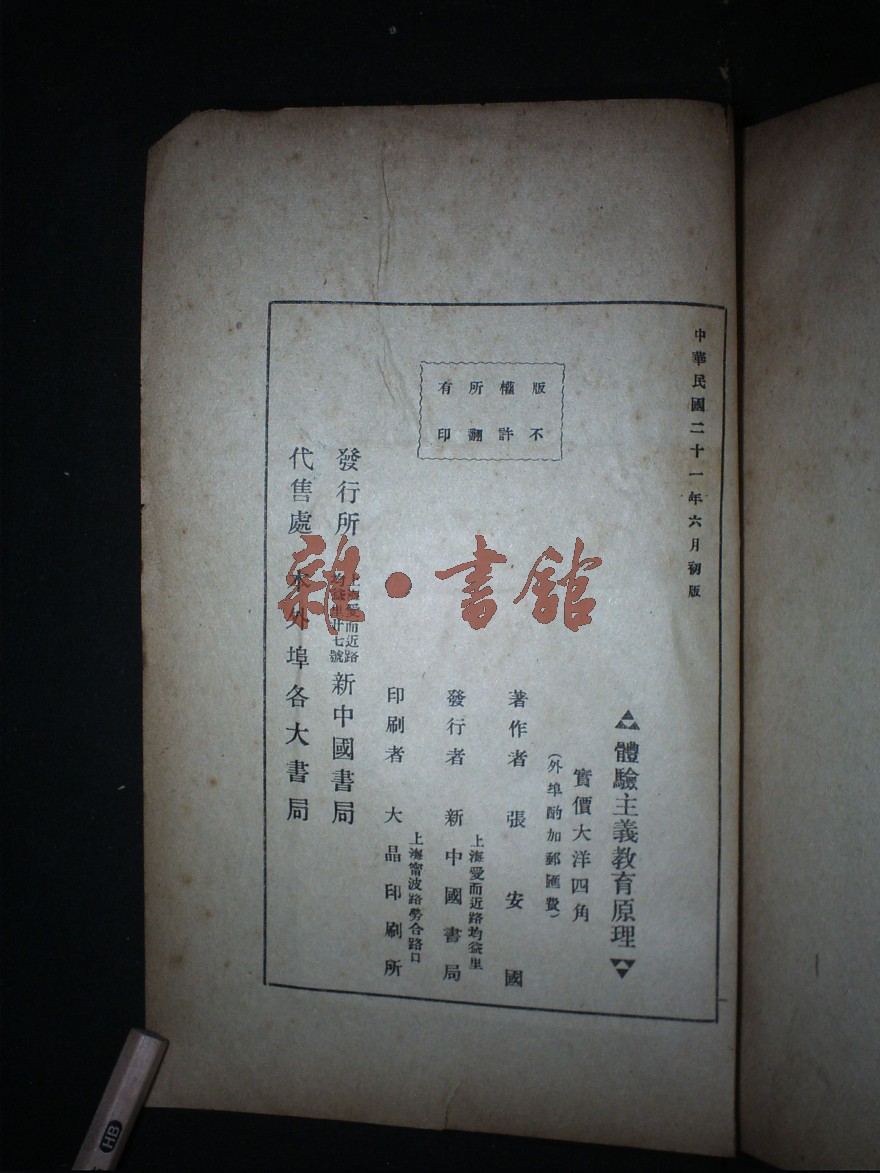 中華民國二十一年六月初版
體驗主義教育原理
實價大洋四角
(外埠酌加郵匯費)
著作者 張安國
上海愛而近路均益里
發行者 新中國書局
上海甯波路勞合路口
印刷者 大晶印刷所
版權所有
不許翻印
發行所 上海愛而近路均益里廿七號 新中國書局
代售處 本外埠各大書局
雜·書館
HB